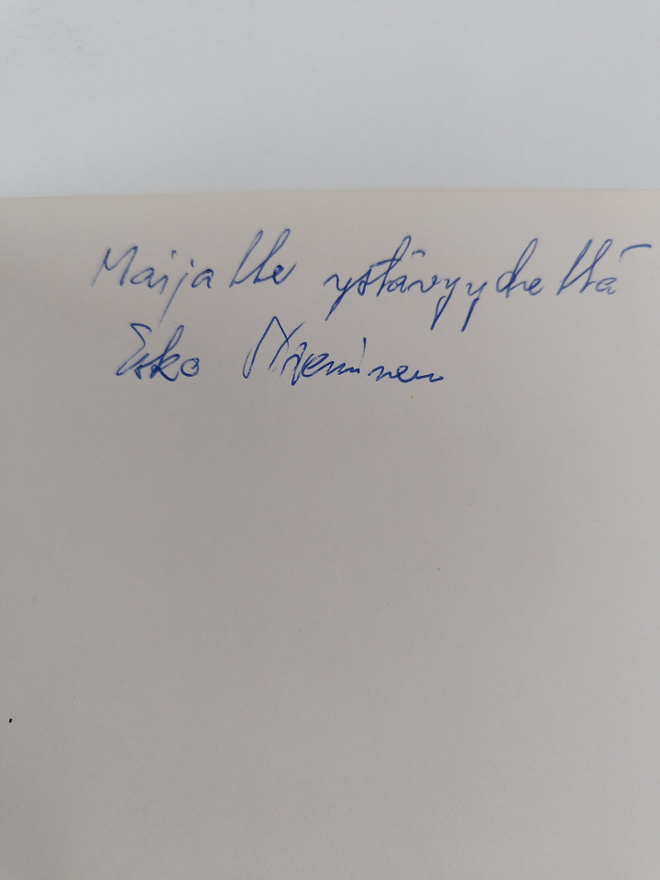 Maijalle ystävyydellä
Esko Nieminen